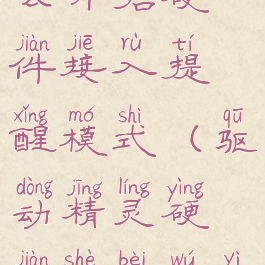 jiàn jiē rù tí
件接入提
xǐng mó shì qū
醒模式（驱
dòng jīng líng yìng
动精灵硬
jiàn shè bèi wú yì